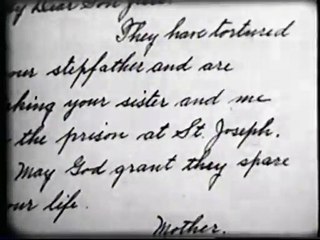 y Dear Son
They have tortured
our stepfather and are
king your sister and me
the prison at St. Joseph.
May God grant they spare
our life.
Mother.